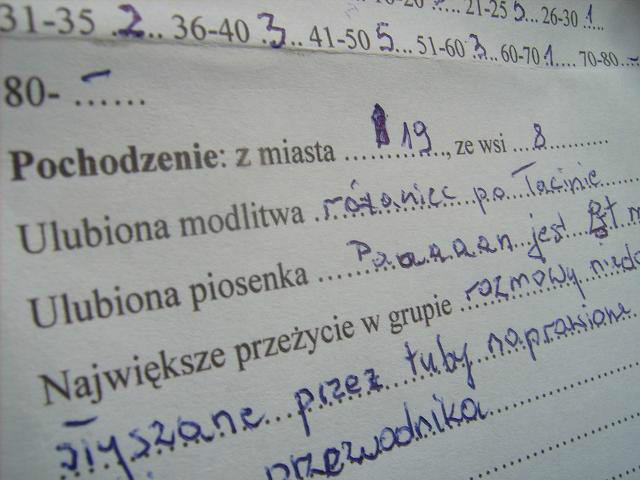 21-25 5... 26-30 .1...
31-35 .2... 36-40 .3... 41-50 5... 51-60 .3... 60-70 1.... 70-80...-
80- ......
Pochodzenie: z miasta ......19..., ze wsi ...8..........
Ulubiona modlitwa .różaniec po łacinie......
Ulubiona piosenka ...... jest
Największe przeżycie w grupie rozmowy
słyszane...przez tuby naprawione
przewodnika